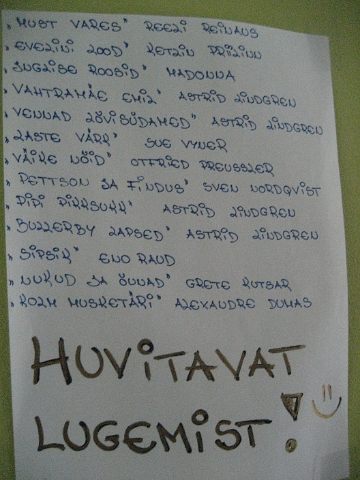 „MUST VARES" REELI REINAUS
„EVELINI LOOD" KETLIN PRIILINN
„INGLISE ROOSID" MADONNA
„VAHTRAMÄE EMIL" ASTRID LINDGREN
„VENNAD LÕVISÜDAMED" ASTRID LINDGREN
„LASTE VÄRK" SUE VYNER
„VÄIKE NÕID" OTFRIED PREUSSLER
„PETTSON JA FINDUS" SVEN NORDQVIST
„PIPI PIKKSUKK" ASTRID LINDGREN
„BULLERBY LAPSED" ASTRID LINDGREN
„SIPSIK" ENO RAUD
„NUKUD JA ÕUNAD" GRETE KUTSAR
„KOLM MUSKETÄRI" ALEXANDRE DUMAS
HUVITAVAT
LUGEMIST!